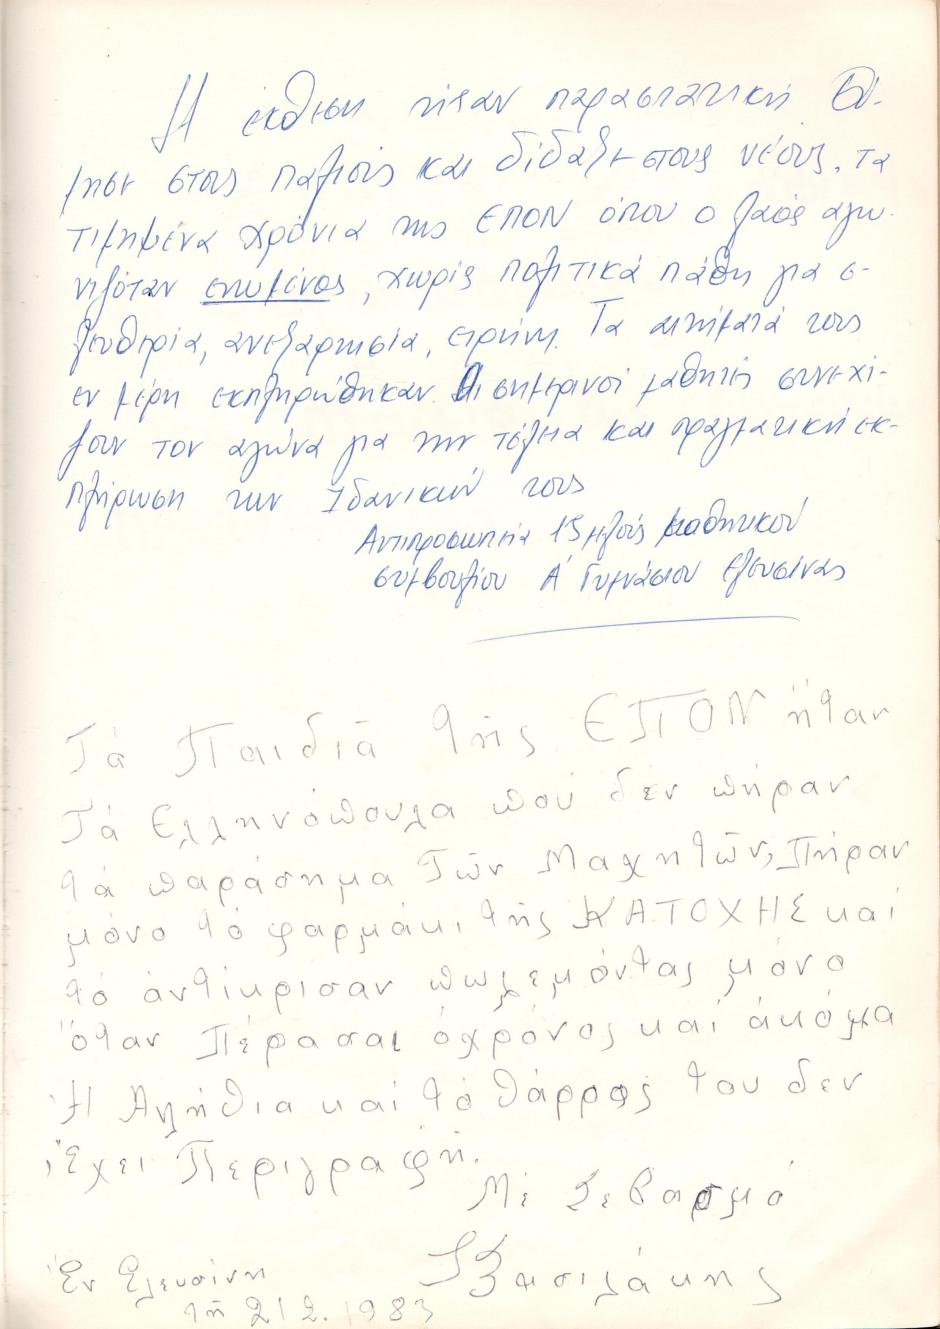 Η έκθεση ήταν παραστατική Θύ-
μησε στους παλιούς και δίδαξε στους νέους, τα
τιμημένα χρόνια της ΕΠΟΝ όπου ο λαός αγω-
νιζόταν ενωμένος, χωρίς πολιτικά πάθη για ε-
λευθερία, ανεξαρτησία, ειρήνη. Τα αιτήματά τους
εν μέρη εκπληρώθηκαν. Οι σημερινοί μαθητές συνεχί-
ζουν τον αγώνα για την τέλεια και πραγματική εκ-
πλήρωση των Ιδανικών τους
Αντιπροσωπεία 15μελούς μαθητικού
συμβουλίου Α' Γυμνάσιου Ελευσίνας
Τά Παιδιά τής ΕΠΟΝ ήταν
Τά Ελληνόπουλα πού δέν πήραν
τά παράσημα Τῶν Μαχητῶν, Πήραν
μόνο τό φαρμάκι τής ΚΑΤΟΧΗΣ καί
τό άντίκρισαν πωλεμόντας μόνο
όταν Πέρασαι ό χρόνος καί άκόμα
Ή Αλήθια καί τό θάρρος του δεν
Έχει Περιγραφή.
Μέ Σεβασμό
Βασιλάκης
Έν Ελευσίνη
τῆ 2/2.1983